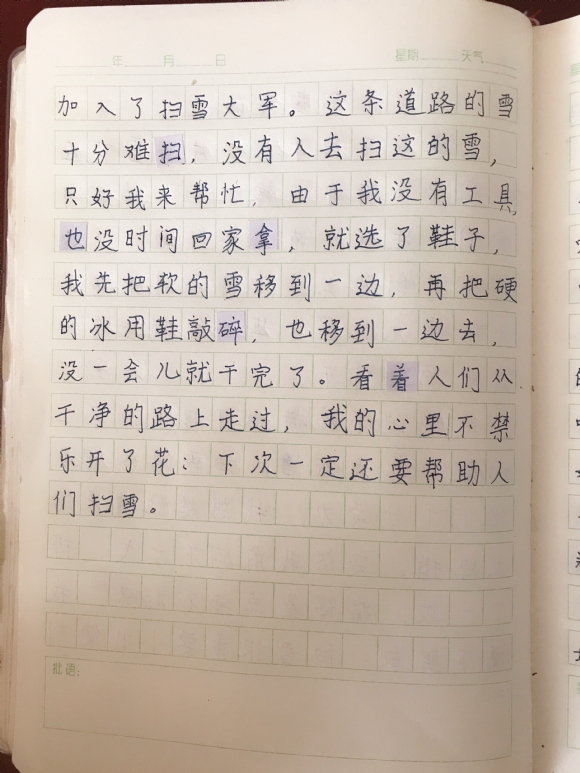 年 月 日 星期 天气
加入了扫雪大军。这条道路的雪
十分难扫，没有人去扫这的雪，
只好我来帮忙，由于我没有工具，
也没时间回家拿，就选了鞋子，
我先把软的雪移到一边，再把硬
的冰用鞋敲碎，也移到一边去，
没一会儿就干完了。看着人们从
干净的路上走过，我的心里不禁
乐开了花：下次一定还要帮助人
们扫雪。
批语：